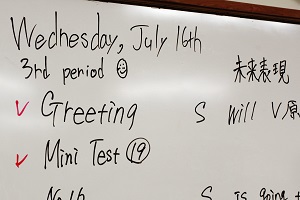 Wednesday, July 16th
3rd period ☺ 未来表現
✓ Greeting S will V原
✓ Mini Test ⑲
No.16 S is going